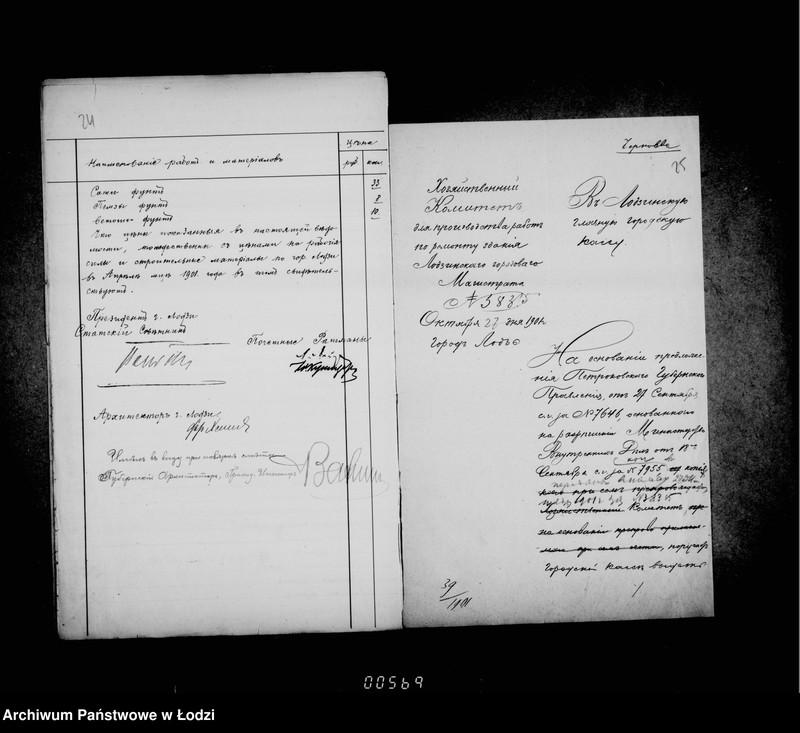 24
Наименованіе работъ и матеріаловъ
Цѣна
руб. коп.
Сажи фунтъ 33
Пемзы фунтъ 8
фунтъ 10
Что цѣны показанныя въ настоящей вѣдо-
мости, тождественны съ цѣнами на рабочія
силы и строительные матеріалы по гор. Лодзи
въ Апрѣлѣ мцѣ 1901 года въ томъ свидѣтель-
ствуютъ.
Президентъ г. Лодзи
Статскій Совѣтникъ
Почетные Ратманы
Архитекторъ г. Лодзи
Имѣлъ въ виду при повѣркѣ смѣты
Губернскій
25
Хозяйственный
Комитетъ
для производства работъ
по ремонту зданія
Лодзинскаго городоваго
Магистрата
№ 5835
Октября 27 дня 1901 г.
Городъ Лодзь
Въ Лодзинскую
Главную Городскую
кассу.
На основаніи предложе-
нія Петроковскаго Губернскаго
Правленія, отъ 27 Сентября
с.г. за № 7646, основаннаго
на разрѣшеніи Министерства
Внутреннихъ Дѣлъ отъ
Сентября с.г. за № 7955
1901 г. за №
Комитетъ,
на основаніи
поручаетъ
Городской кассѣ выдать
39
/1901
00569
Archiwum Państwowe w Łodzi